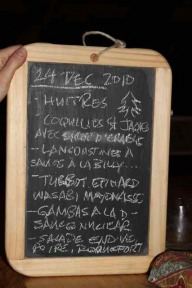 24 DEC 2010
- HUITRES
COQUILLES ST JAQUES
AVEC SIROP D'ERABLE
- LANGOUSTINES À
SAUCE À LA
- TURBOT, EPINARD
WASABI MAYONASSE
- GAMBASALAD -
SAUCE
- SALADE ENDIVE,
POIRE, ROQUEFORT